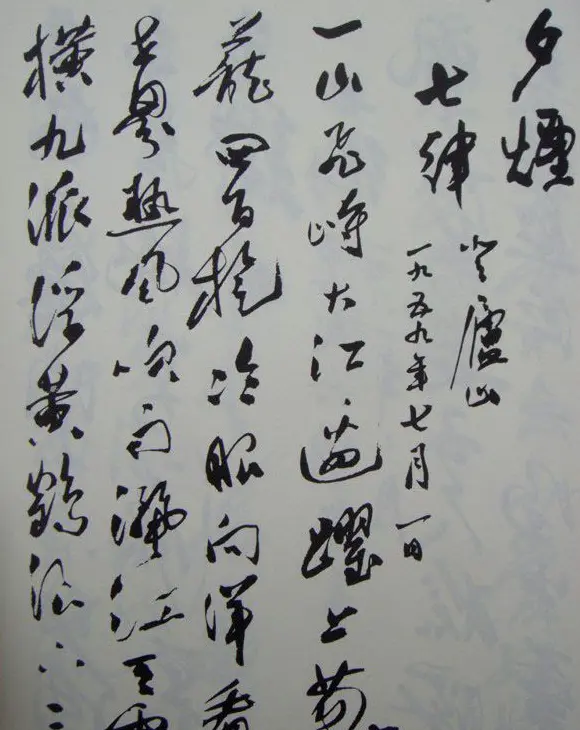 夕煙
七律 登廬山
一九五九年七月一日
一山飛峙大江邊躍上葱
蘢四百旋冷眼向洋看
世界熱風吹雨灑江天雲
橫九派浮黃鶴浪下三